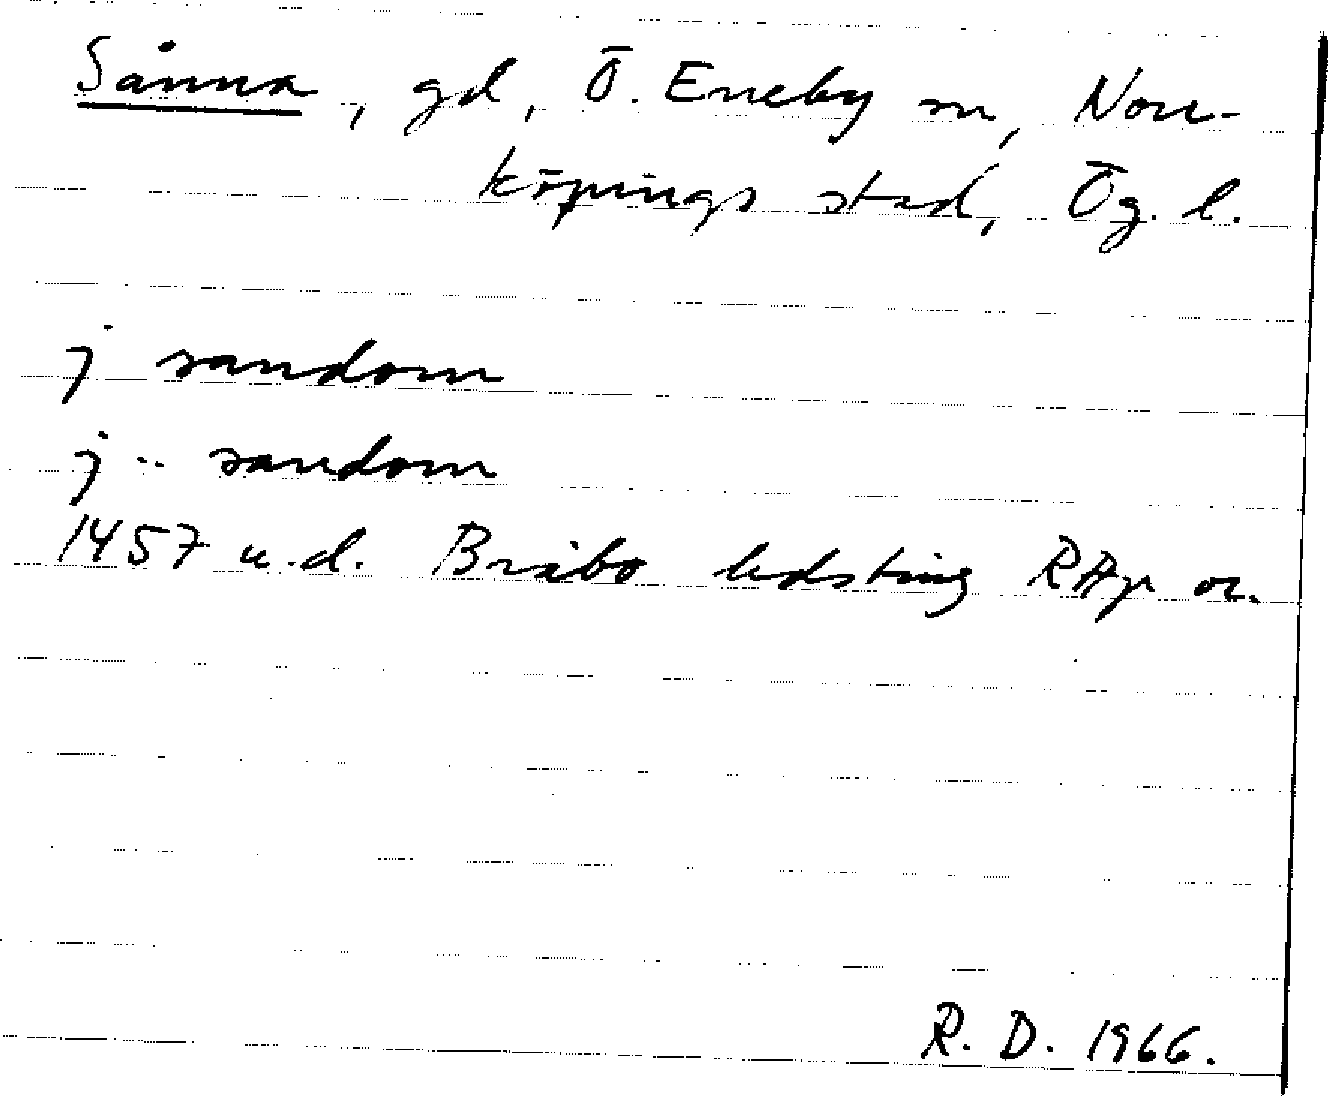 Sånna, gd, Ö. Eneby sn, Norr-
köpings stad, Ög. l.
j sandom
j .. sandom
1457 u.d. Bråbo ledsting RApp or.
R. D. 1966.